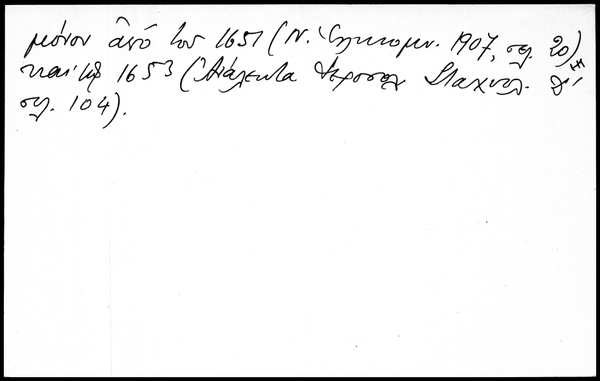 μόνον ἀπό του 1651 (Ν. Ἑλληνομν. 1907, σελ. 20)
καί τῷ 1653 (Ἀνάλεκτα Ἱεροσολ. Σταχυολ. Β΄,
σελ. 104).